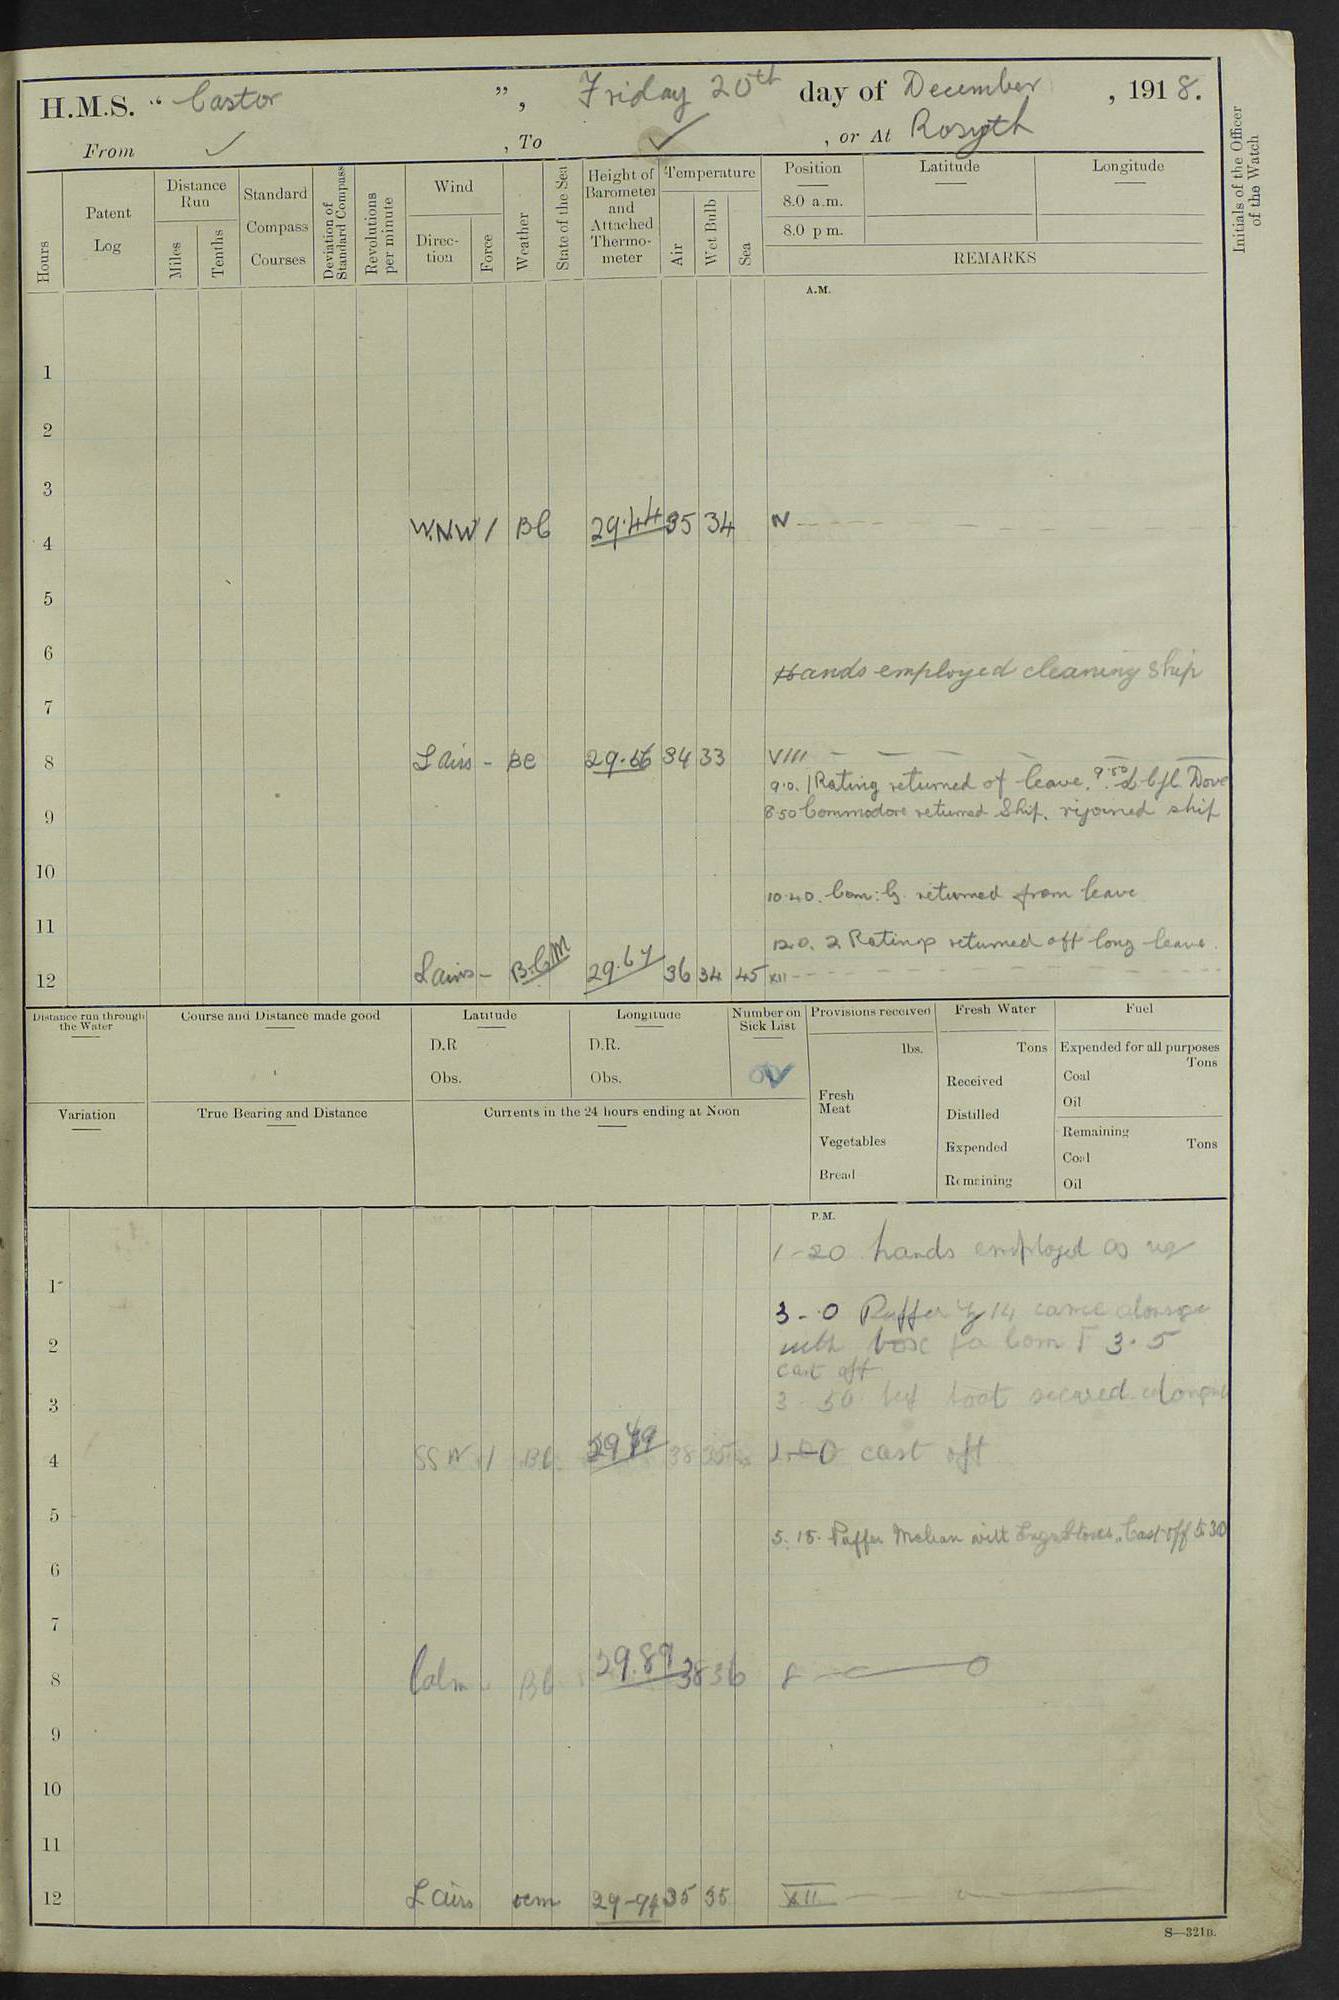 H.M.S. " Castor ", Friday 20th day of December, 1918.
From ✓, To ✓, or At Rosyth
Hours
Patent Log
Distance Run
Miles
Tenths
Standard Compass Courses
Deviation of Standard Compass
Revolutions per minute
Wind
Direction
Force
Weather
State of the Sea
Height of Barometer and Attached Thermometer
Temperature
Air
Wet Bulb
Sea
Position
8.0 a.m.
8.0 p m.
Latitude
Longitude
REMARKS
Initials of the Officer of the Watch
A.M.
1
2
3
4 W.N.W 1 BC 29.44 35 34
5
6
Hands employed cleaning ship
7
8 L airs - BC 29.66 34 33 VIII
9.0. 1 Rating returned of leave. 9.50 Dove
8.50 Commodore returned Ship. rejoined ship
9
10
10.40. Com: G. returned from leave
11
12.0. 2 Ratings returned off long leave.
12 L airs - B.C.M 29.67 36 34 45 XII
Distance run through the Water
Course and Distance made good
Latitude
D.R
Obs.
Longitude
D.R.
Obs.
Number on Sick List
Provisions received
lbs.
Fresh Meat
Vegetables
Bread
Fresh Water
Tons
Received
Distilled
Expended
Remaining
Fuel
Expended for all purposes
Tons
Coal
Oil
Remaining
Tons
Coal
Oil
Variation
True Bearing and Distance
Currents in the 24 hours ending at Noon
P.M.
1-20 hands employed as req
1
3-0 Puffer 14 came alongside
2 with box Com T 3.5
cast off
3 3 50 boat secured alongside
4 SSW 1 BC 38 35 cast off
5
5.15. Puffer McLean with Engr Stores. Cast off 5.30
6
7
8 Calm BC 29.89 38 36 8
9
10
11
12 L airs ocm 29-94 35 35 XII
S—321B.